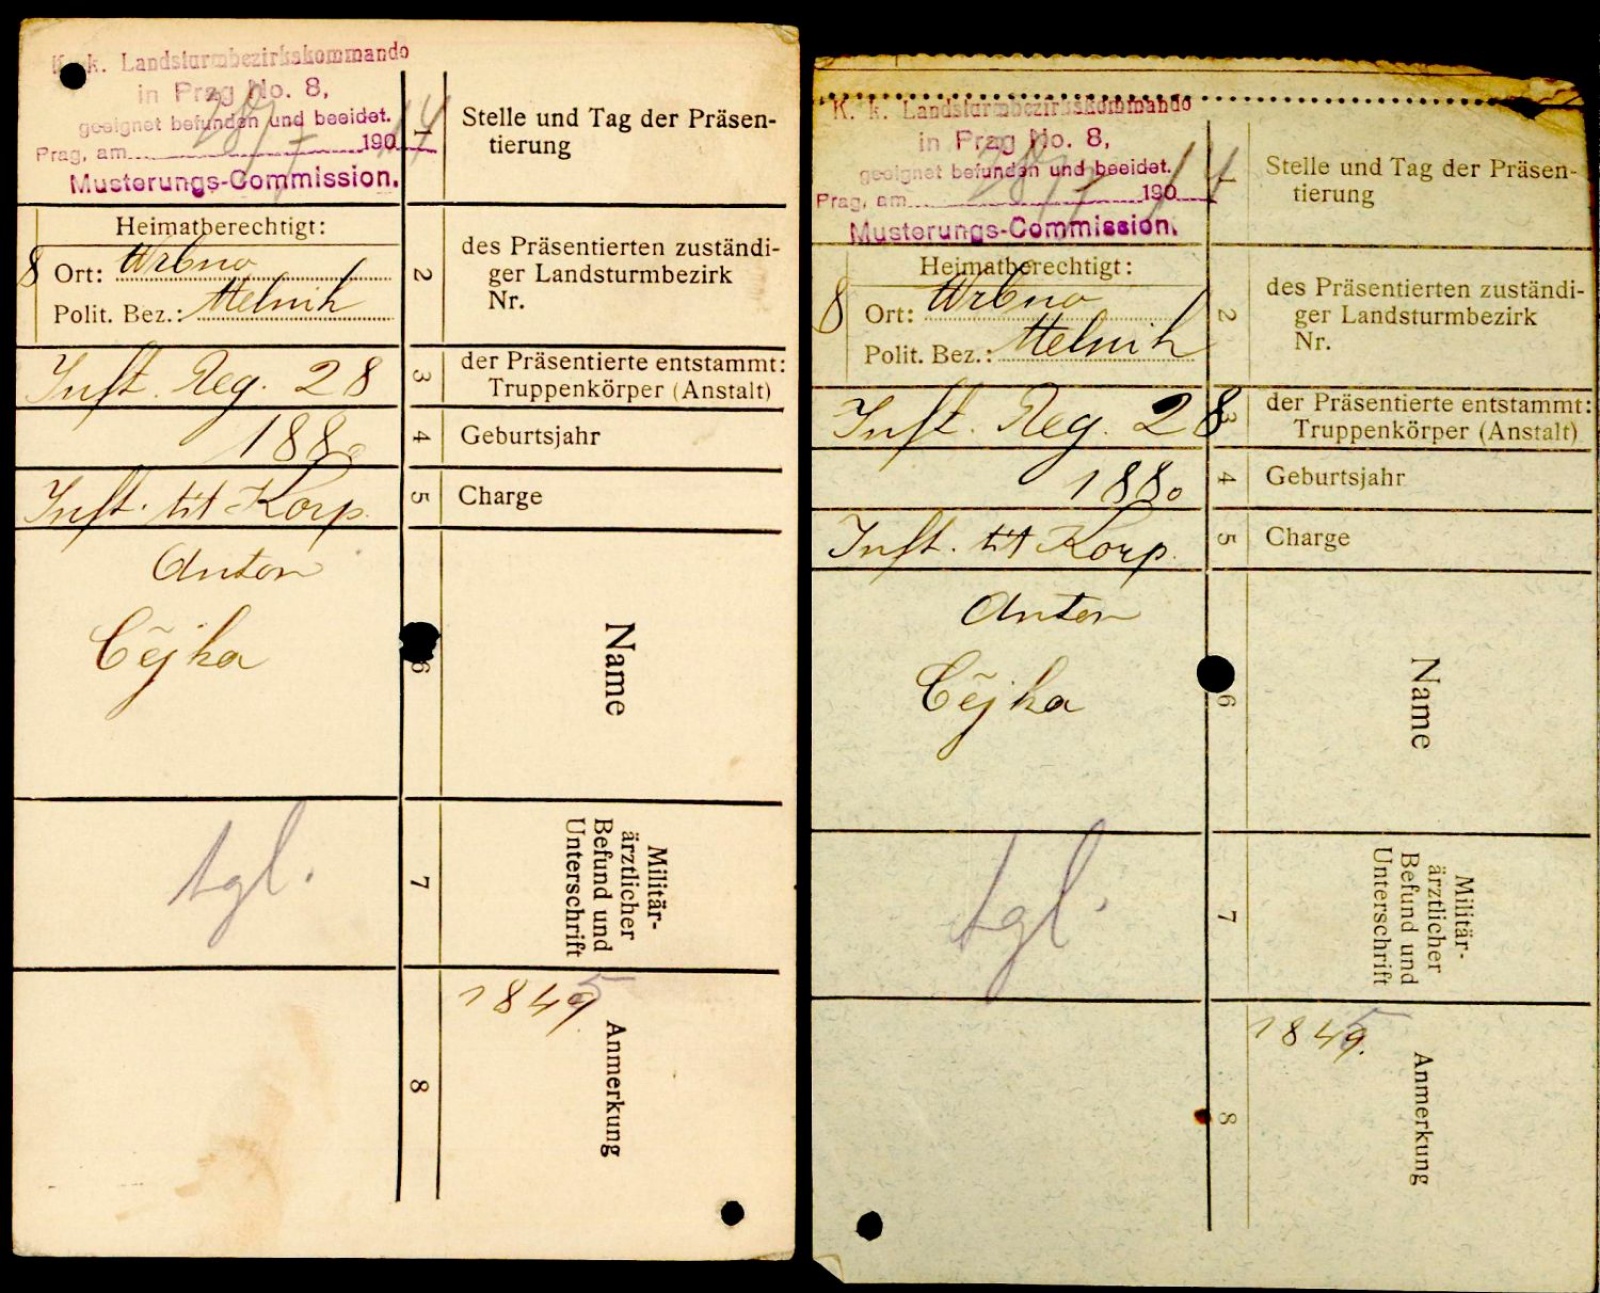 K. k. Landsturmbezirkskommando
in Prag No. 8,
geeignet befunden und beeidet.
Prag, am 190 14
Musterungs-Commission.
1
Stelle und Tag der Präsen-
tierung
Heimatberechtigt:
8
Ort: Wrbno
Polit. Bez.: Melnik
2
des Präsentierten zuständi-
ger Landsturmbezirk
Nr.
Inft. Reg. 28
3
der Präsentierte entstammt:
Truppenkörper (Anstalt)
1880
4
Geburtsjahr
Inft. tit Korp.
5
Charge
Anton
Čejka
6
Name
tgl.
7
Militär-
ärztlicher
Befund und
Unterschrift
8
1849.
5
Anmerkung
K. k. Landsturmbezirkskommando
in Prag No. 8,
geeignet befunden und beeidet.
Prag, am 190 14
Musterungs-Commission.
1
Stelle und Tag der Präsen-
tierung
Heimatberechtigt:
8
Ort: Wrbno
Polit. Bez.: Melnik
2
des Präsentierten zuständi-
ger Landsturmbezirk
Nr.
Inft. Reg. 28
3
der Präsentierte entstammt:
Truppenkörper (Anstalt)
1880
4
Geburtsjahr
Inft. tit Korp.
5
Charge
Anton
Čejka
6
Name
tgl.
7
Militär-
ärztlicher
Befund und
Unterschrift
8
1849.
5
Anmerkung